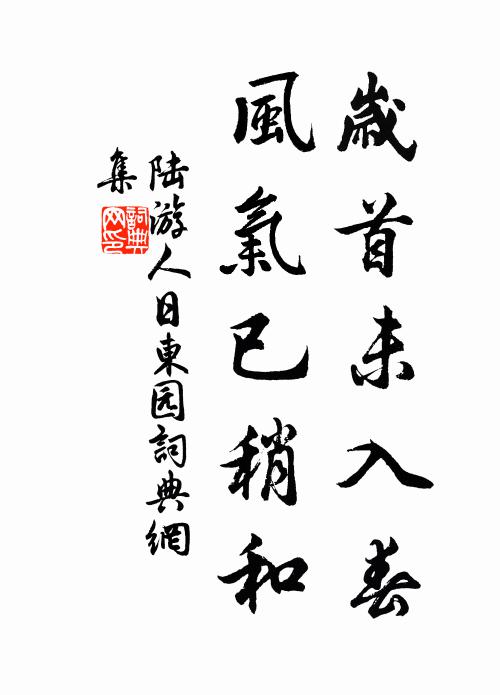 歲首未入春
風氣已稍和
陆游人日東园詞典網
集
詞典
网印